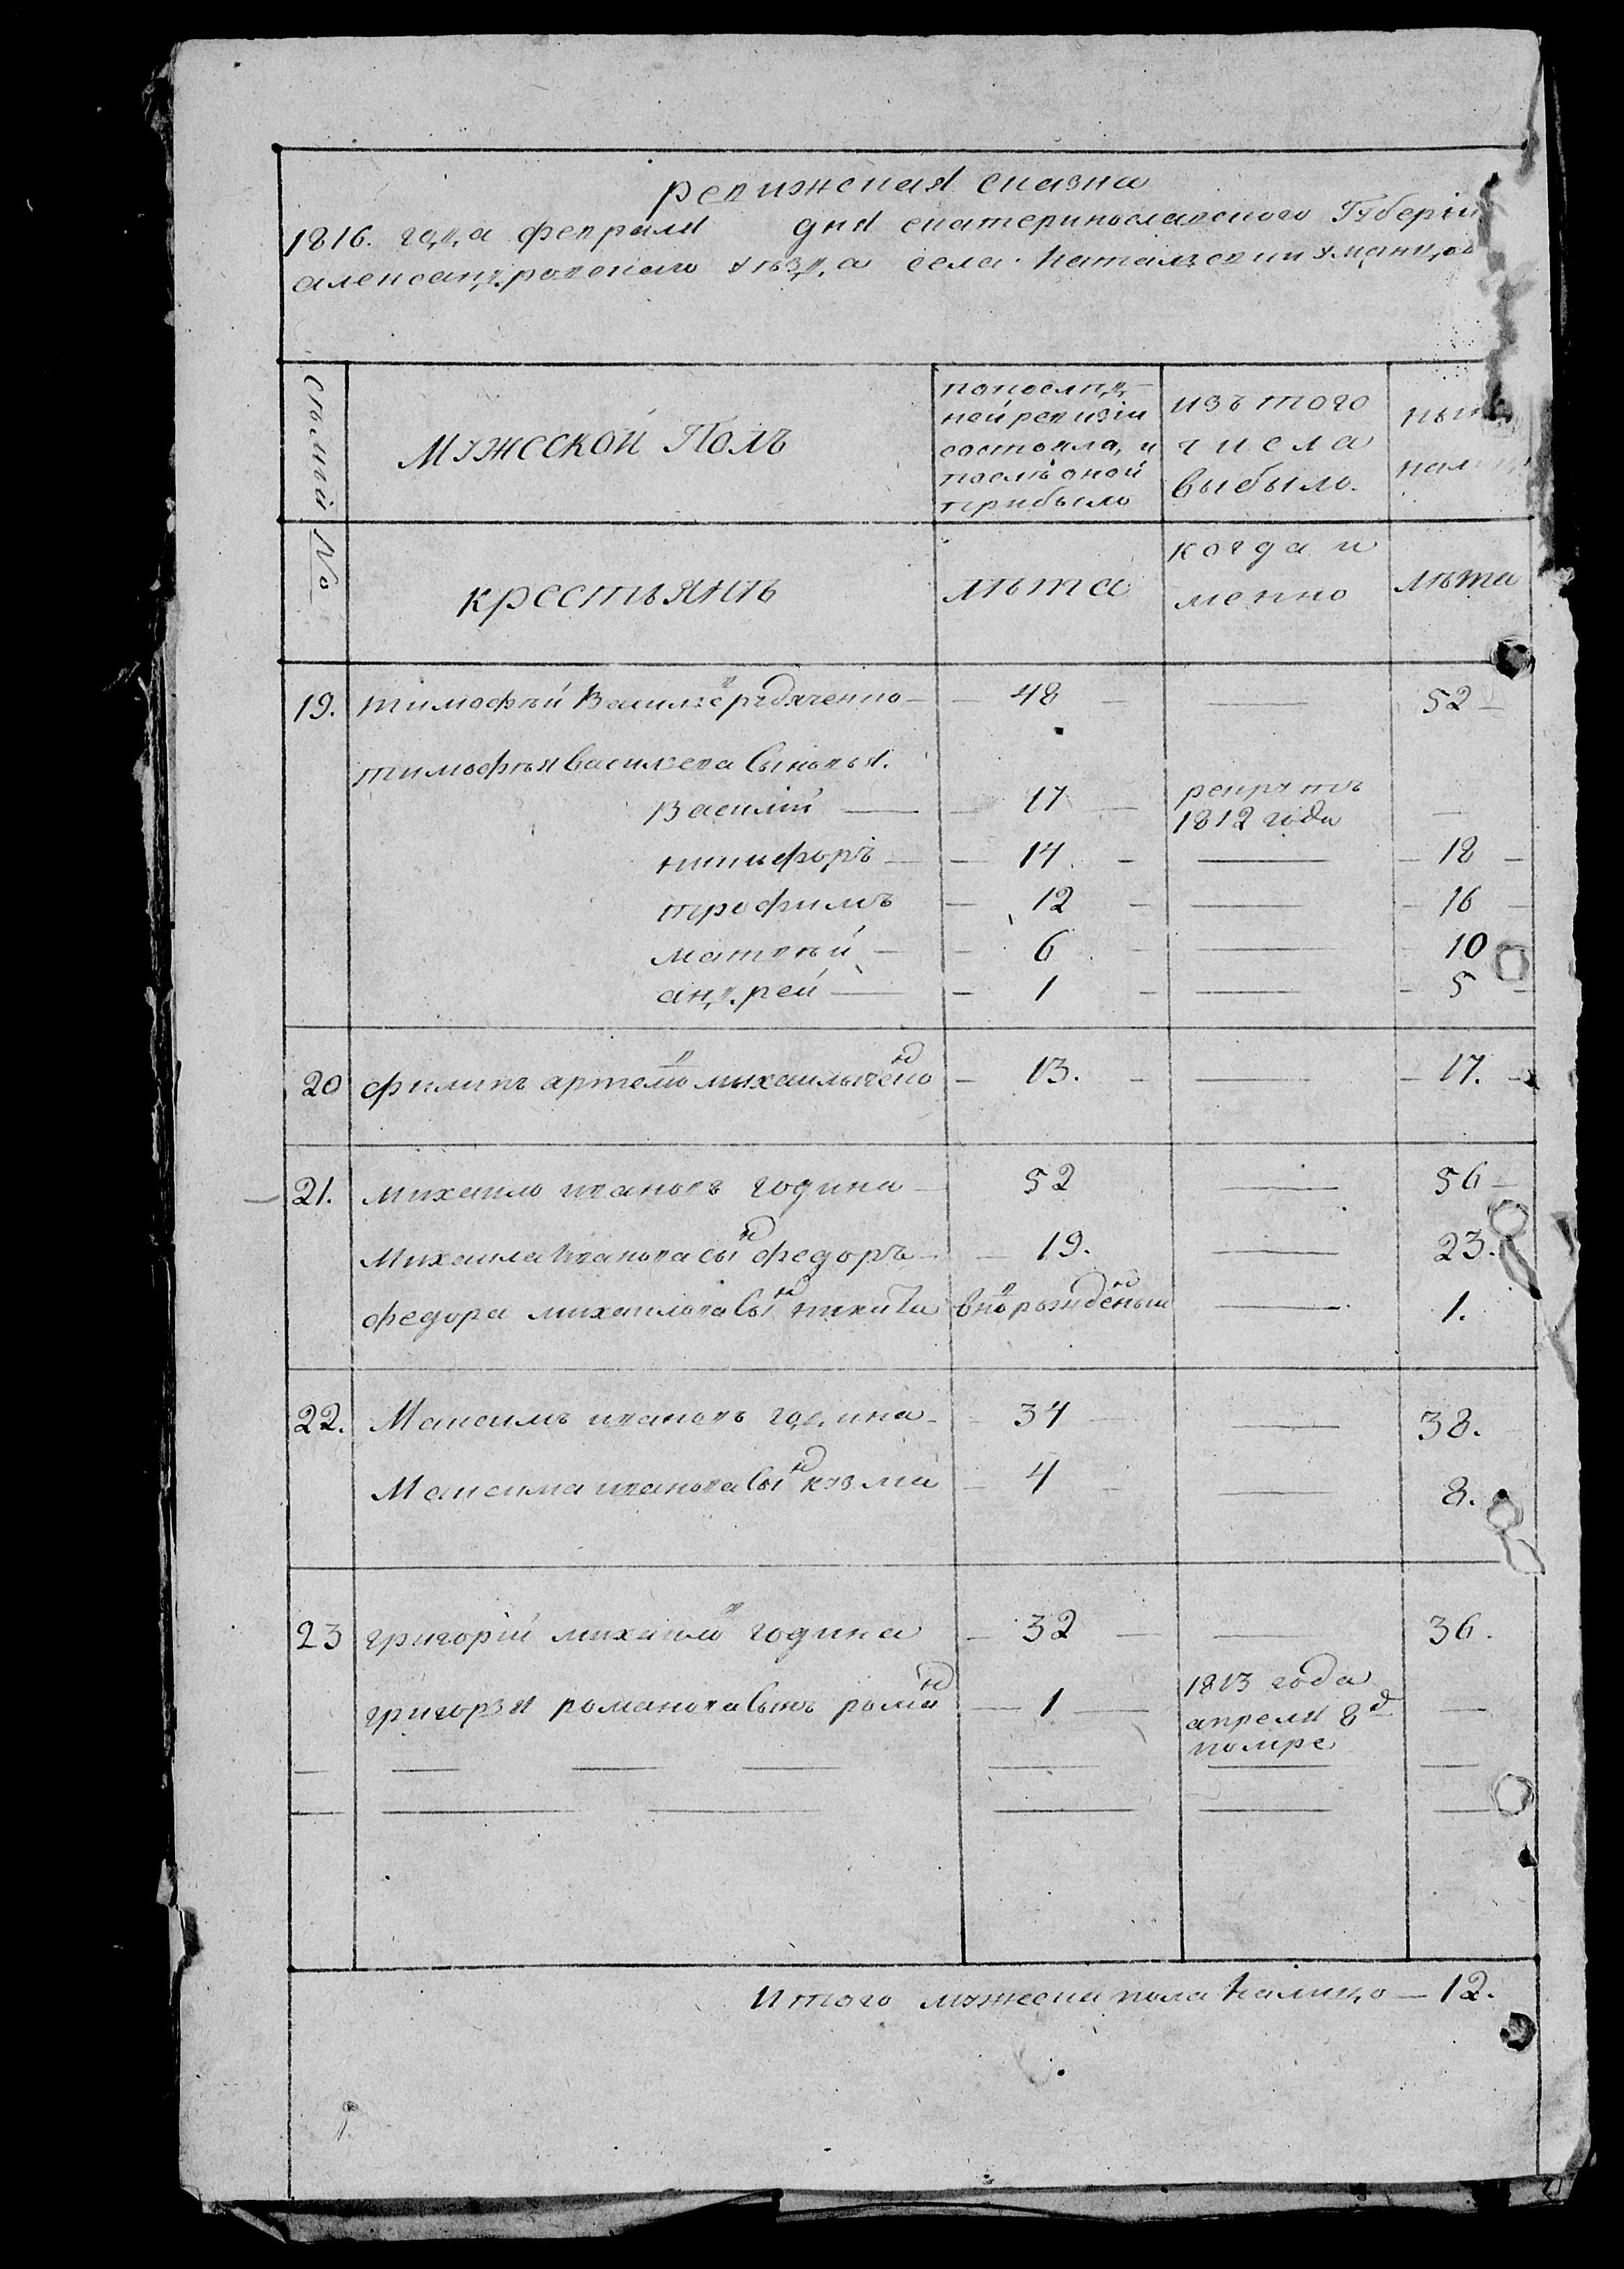 ревижская сказка
1816. года февраля дня екатеринославского Губерніи
александровского уѣзда села Натальевки
Сѣмьи №
Мужеской Полъ
по послѣд-
ней ревизіи
состояло, и
послѣ оной
прибыло
изъ того
числа
выбыло.
крестьянѣ
лѣта
когда и
менно
лѣта
19. тимофѣй Василевъ 48 — 52
тимофѣя василева Сыновья.
Василій 17 рекрутъ
1812 года —
никифоръ 14. — 18
трофимъ 12 — 16
матвѣй 6 — 10
андрей 1 — 5
20 филипъ артемовъ михаилыченко 13. — 17.
21. михаило ивановъ година 52 — 56
Михаила Иванова сынъ федоръ 19. — 23.
федора михаилова Сынъ никита вновьрожденый — 1.
22. Максимъ ивановъ година 34 — 38.
Максима иванова Сынъ кузма 4 — 8.
23 григорій михаиловъ година 32 — 36.
григорья романова Сынъ романъ 1 1813 года
апреля 8д
помре —
Итого мужеска пола налицо — 12.